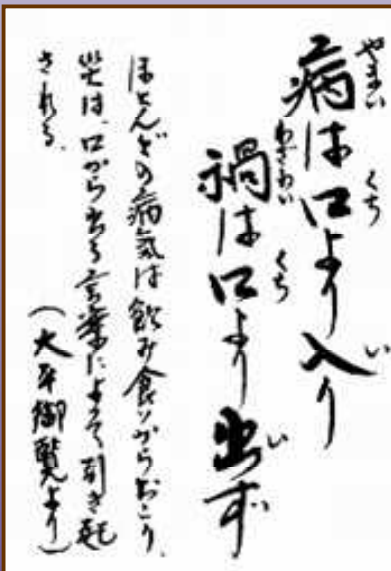 病は口より入り
禍は口より出ず
ほとんどの病気は飲み食いからおこり、
災は、口から出る言葉によって引き起
される。
(太平御覧より)